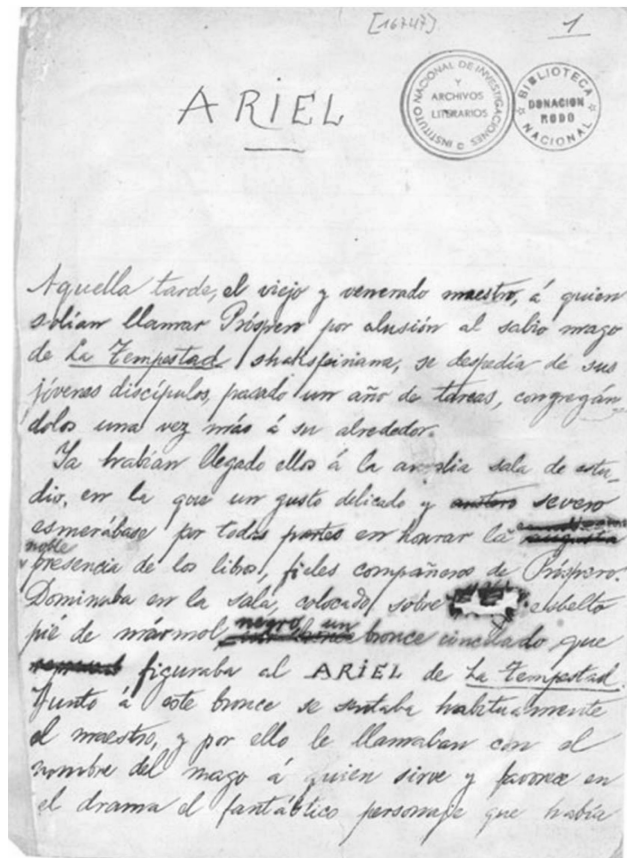 [16747]
1
INSTITUTO NACIONAL DE INVESTIGACIONES
Y
ARCHIVOS
LITERARIOS
BIBLIOTECA
DONACION
RODO
NACIONAL
ARIEL
Aquella tarde, el viejo y venerado maestro, á quien
solían llamar Próspero por alusión al sabio mago
de La Tempestad shakspiriana, se despedía de sus
jóvenes discípulos, pasado un año de tareas, congregán
dolos una vez más á su alrededor.
Ya habían llegado ellos á la amplia sala de estu-
dio, en la que un gusto delicado y austero severo
esmerábase por todas partes en honrar la
noble
presencia de los libros, fieles compañeros de Próspero.
Dominaba en la sala, colocado sobre esbelto
negro, un
pié de mármol bronce cincelado que
figuraba al ARIEL de La Tempestad.
Junto á este bronce se sentaba habitualmente
el maestro, y por ello le llamaban con el
nombre del mago á quien sirve y favorece en
el drama el fantástico personaje que había